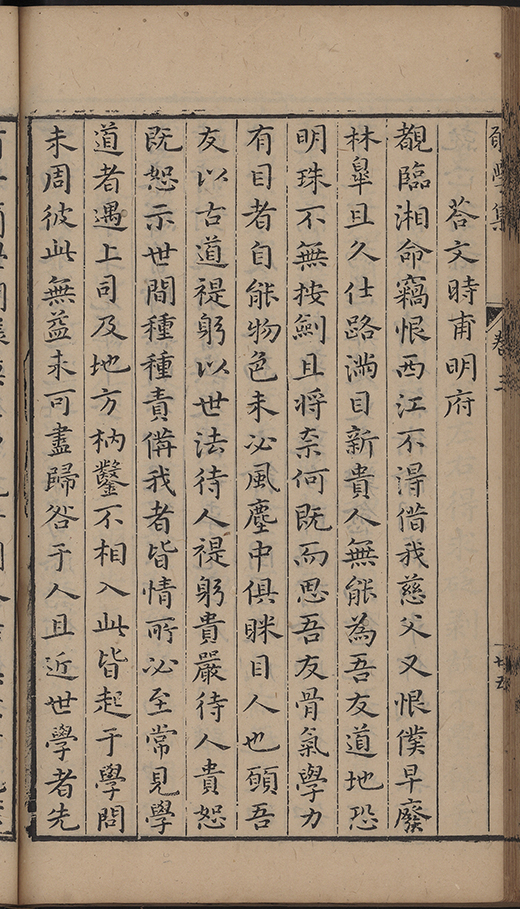 願學集 卷三 廿五
荅文時甫明府
覩臨湘命竊恨西江不淂借我慈父又恨僕早廢
林臯且久仕路滿目新貴人無能為吾友道地恐
明珠不無按劍且將柰何既而思吾友骨氣學力
有目者自能物色未必風塵中俱眯目人也願吾
友以古道禔躬以世法待人禔躬貴嚴待人貴恕
既恕示世間種種責備我者皆情所必至常見學
道者遇上司及地方枘鑿不相入此皆起于學問
未周彼此無益未可盡歸咎于人且近世學者先